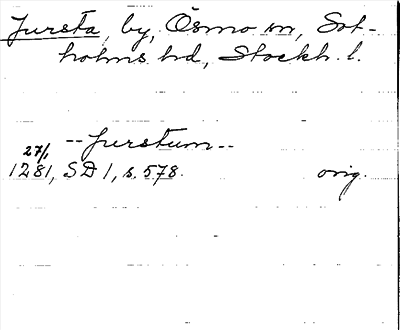 Jursta, by, Ösmo sn, Sot-
holms hd, Stockh. l.
--jurstum--
27/1
1281, SD 1, s. 578. orig.